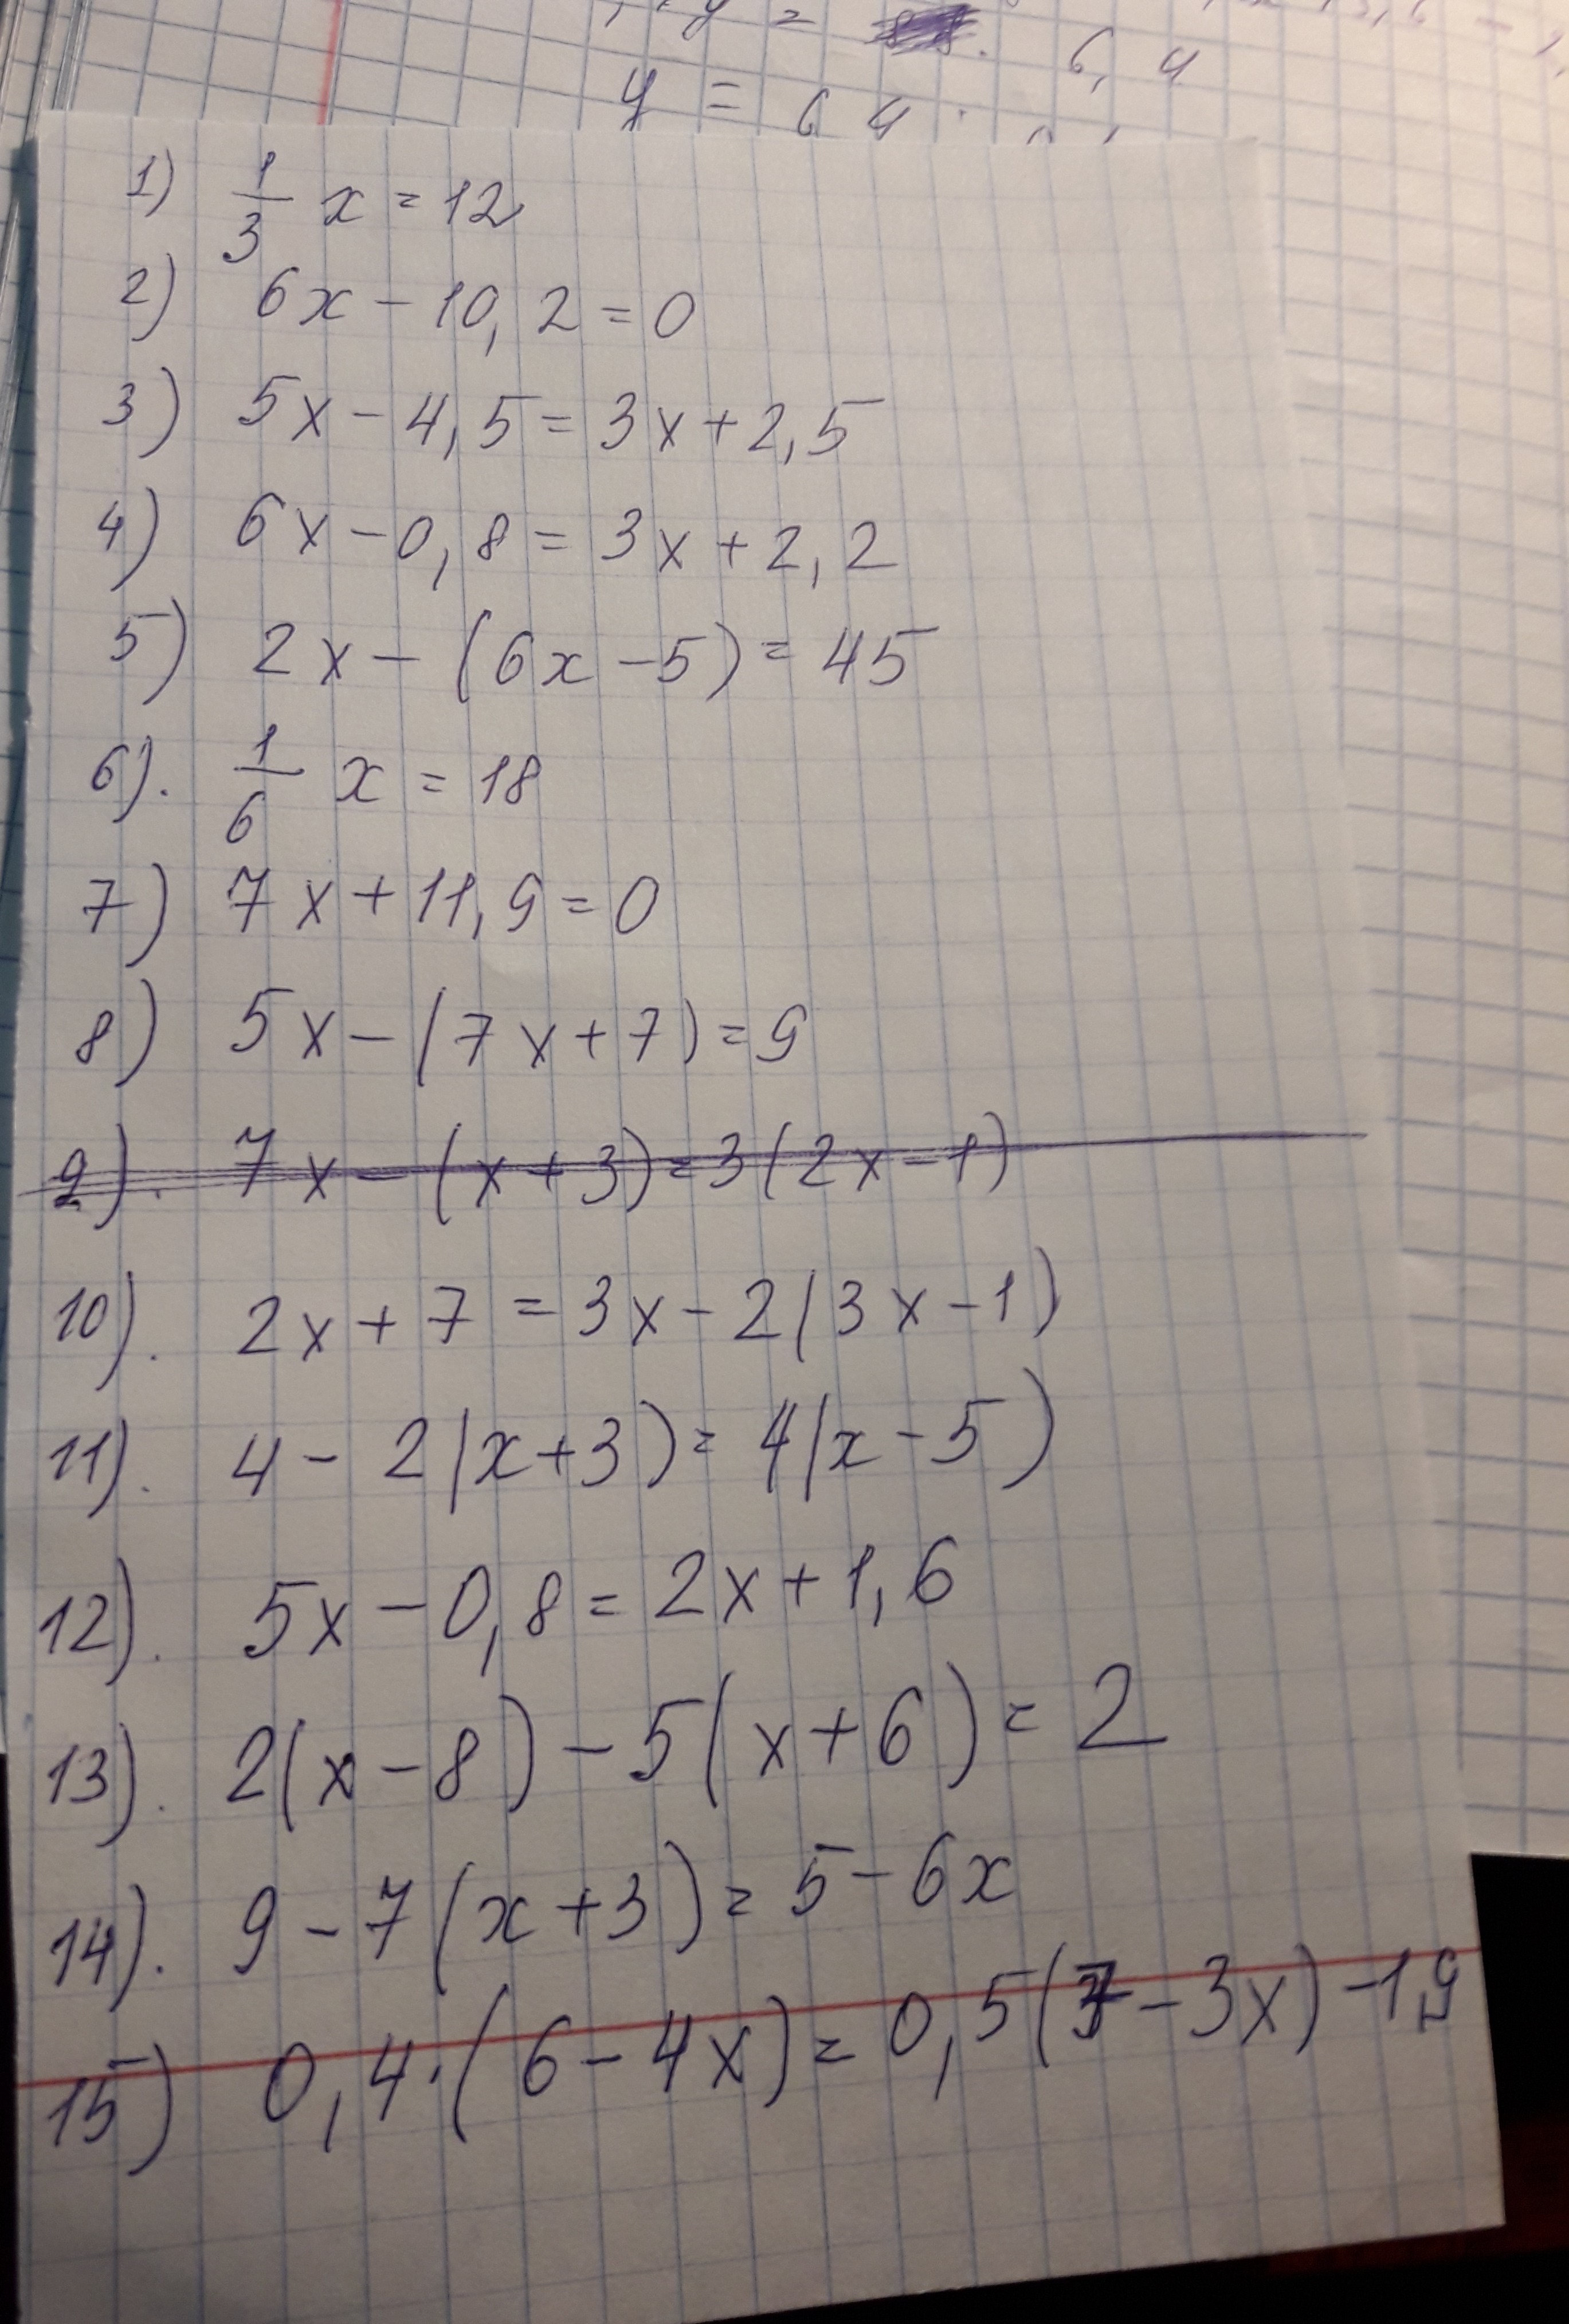 y =
6,4
y = 64 .
1) 1/3 x = 12
2) 6x - 10,2 = 0
3) 5x - 4,5 = 3x + 2,5
4) 6x - 0,8 = 3x + 2,2
5) 2x - (6x - 5) = 45
6). 1/6 x = 18
7) 7x + 11,9 = 0
8) 5x - (7x + 7) = 9
9). 7x - (x + 3) = 3(2x - 1)
10). 2x + 7 = 3x - 2(3x - 1)
11). 4 - 2(x + 3) = 4(x - 5)
12). 5x - 0,8 = 2x + 1,6
13). 2(x - 8) - 5(x + 6) = 2
14). 9 - 7(x + 3) = 5 - 6x
15) 0,4·(6 - 4x) = 0,5(7 - 3x) - 1,9